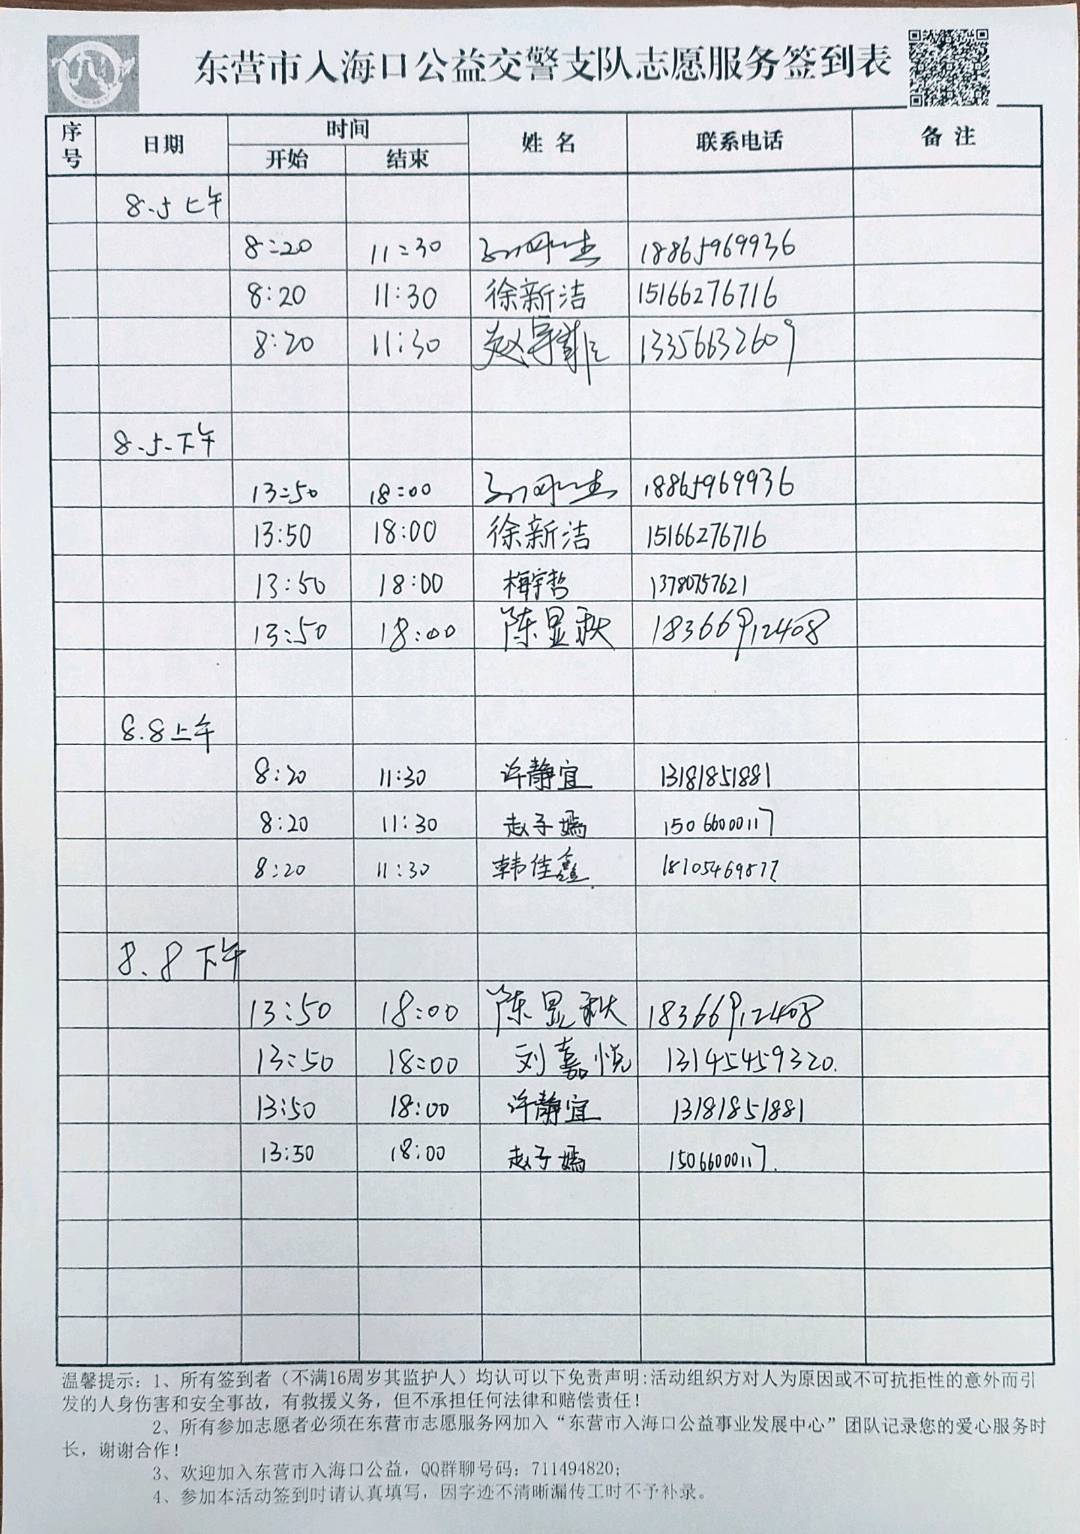 东营市入海口公益交警支队志愿服务签到表
序号 日期 时间 姓名 联系电话 备注
开始 结束
8.5上午
8:20 11:30 18865969936
8:20 11:30 徐新洁 15166276716
8:20 11:30 赵 13356632609
8.5.下午
13:50 18:00 18865969936
13:50 18:00 徐新洁 15166276716
13:50 18:00 梅宇哲 13780757621
13:50 18:00 陈显秋 18366912408
8.8上午
8:20 11:30 许静宜 13181851881
8:20 11:30 赵子嫣 15066000117
8:20 11:30 韩佳鑫
8.8下午
13:50 18:00 陈显秋 18366912408
13:50 18:00 刘嘉悦 13145459320.
13:50 18:00 许静宜 13181851881
13:50 18:00 赵子嫣 15066000117.
温馨提示:1、所有签到者(不满16周岁其监护人)均认可以下免责声明:活动组织方对人为原因或不可抗拒性的意外而引
发的人身伤害和安全事故,有救援义务,但不承担任何法律和赔偿责任!
2、所有参加志愿者必须在东营市志愿服务网加入“东营市入海口公益事业发展中心”团队记录您的爱心服务时
长,谢谢合作!
3、欢迎加入东营市入海口公益,QQ群聊号码:711494820;
4、参加本活动签到时请认真填写,因字迹不清晰漏传工时不予补录。